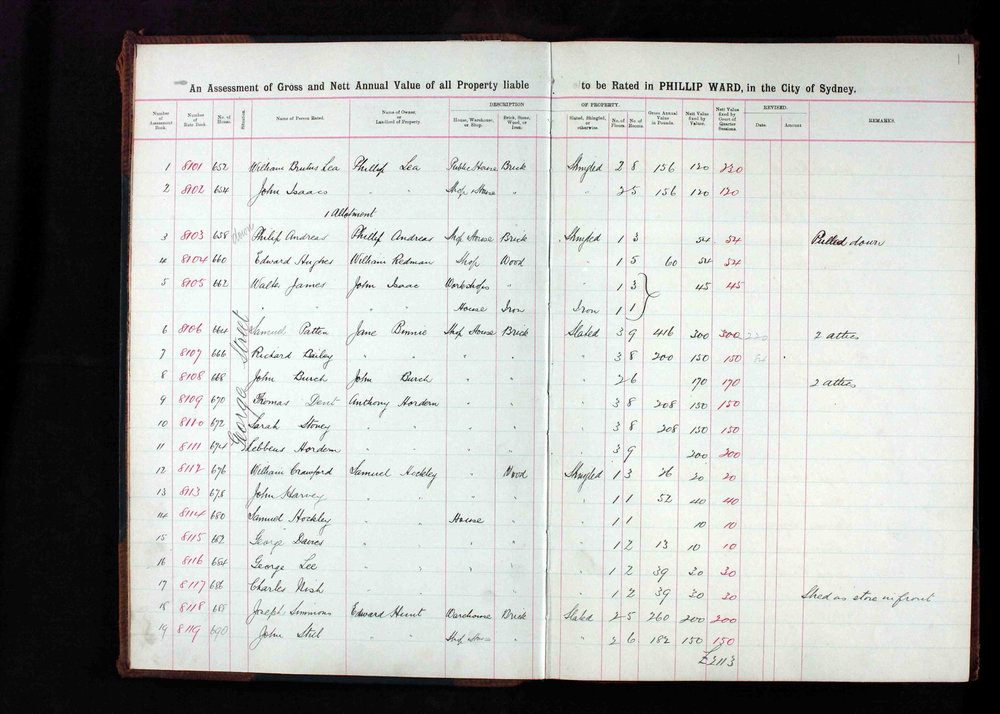 1
An Assessment of Gross and Nett Annual Value of all Property liable to be Rated in PHILLIP WARD, in the City of Sydney.
Number of Assessment Book. Number of Rate Book. No. of House. Situation. Name of Person Rated. Name of Owner, or Landlord of Property. DESCRIPTION OF PROPERTY. House, Warehouse, or Shop. Brick, Stone, Wood, or Iron. Slated, Shingled, or otherwise. No. of Floors. No. of Rooms. Gross Annual Value in Pounds. Nett Value fixed by Valuer. Nett Value fixed by Court of Quarter Sessions. REVISED. Date. Amount REMARKS.
George Street
1 8101 652 William Brutus Lea Phillip Lea Public House Brick Shingled 2 8 156 120 120
2 8102 654 John Isaacs " " Shop & House " " 2 5 156 120 120
1 Allotment
3 8103 658 Philip Andreas Phillip Andreas Shop House Brick Shingled 1 3 54 54 Pulled down
4 8104 660 Edward Hughes William Redman Shop Wood " 1 5 60 54 54
5 8105 662 Walter James John Isaac Workshops " " 1 3 45 45
" House Iron Iron 1 1
6 8106 664 Samuel Patten Jane Binnie Shop House Brick Slated 3 9 416 300 300 220 2 attics
7 8107 666 Richard Bailey " " " " " 3 8 200 150 150
8 8108 668 John Burch John Burch " " " 2 6 170 170 2 attics
9 8109 670 Thomas Dent Anthony Hordern " " " 3 8 208 150 150
10 8110 672 Sarah Stoney " " " " " 3 8 208 150 150
11 8111 674 Lebbeus Hordern " " " " " 3 9 200 200
12 8112 676 William Crawford Samuel Hockley Wood Shingled 1 3 26 20 20
13 8113 678 John Harvey " " " " 1 1 52 40 40
14 8114 680 Samuel Hockley " " House " " 1 1 10 10
15 8115 682 George Davies " " " " " 1 2 13 10 10
16 8116 684 George Lee " " " " " 1 2 39 30 30
17 8117 686 Charles Nish " " " " " 1 2 39 30 30 Shed as store in front
18 8118 688 Joseph Simmons Edward Hunt Warehouse Brick Slated 2 5 260 200 200
19 8119 690 John " " Shop House " " 2 6 182 150 150
£2113